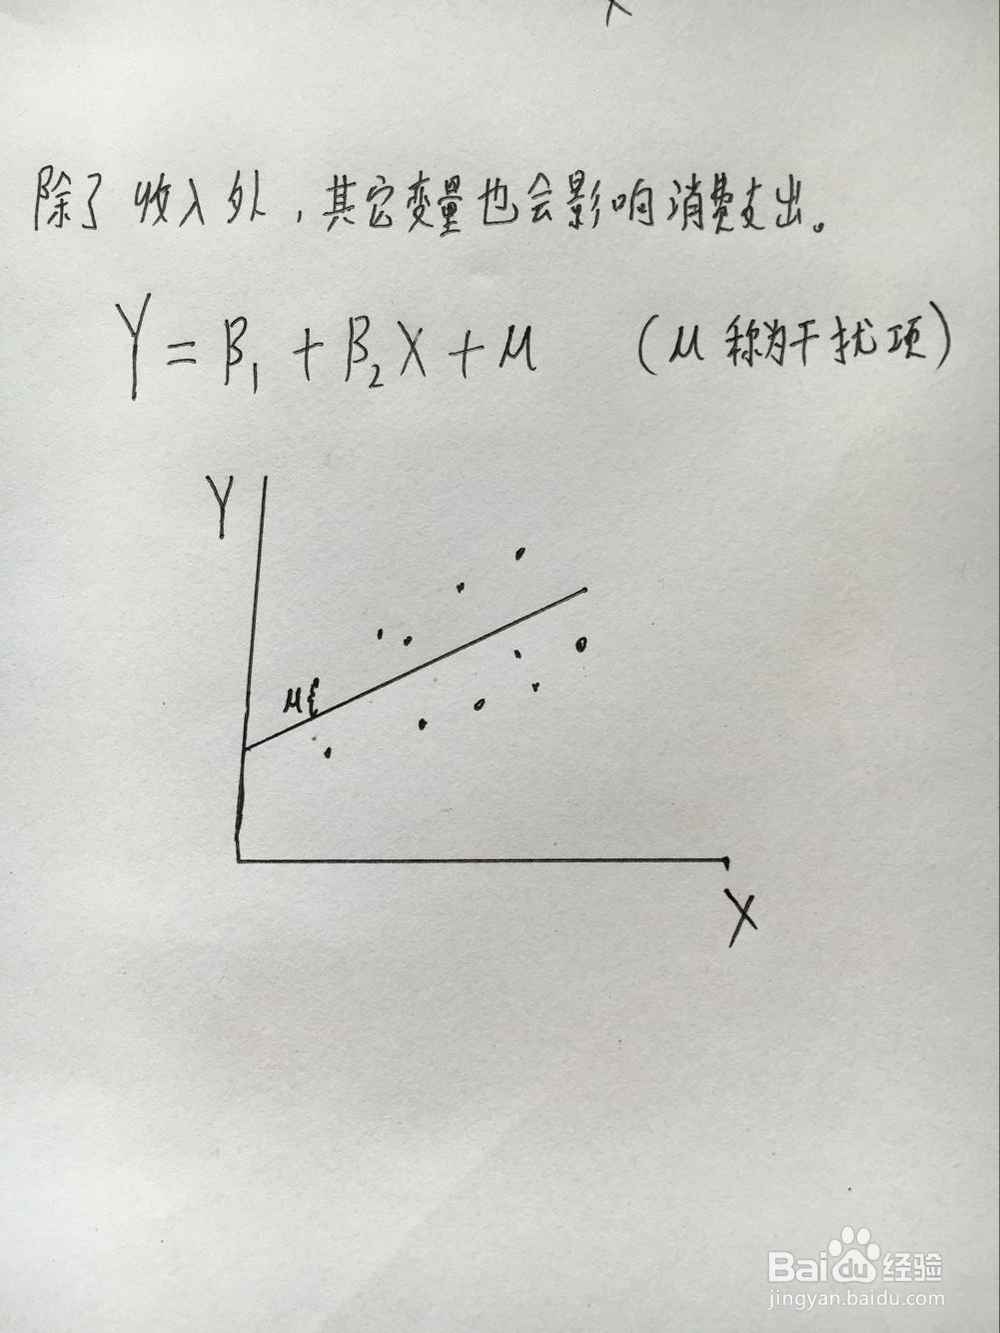 X
除了收入外，其它变量也会影响消费支出。
Y = β₁ + β₂X + μ （μ称为干扰项）
Y
μ{
X
Baidu经验
jingyan.baidu.com